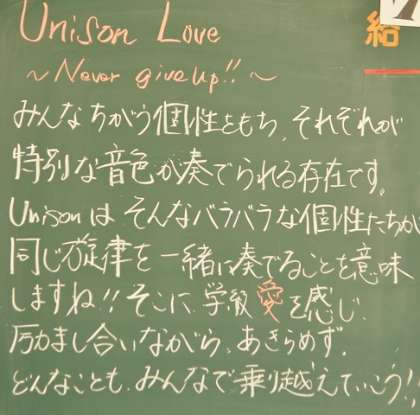 Unison Love
給
～Never give up!!～
みんなちがう個性をもち、それぞれが
特別な音色が奏でられる存在です。
Unisonは そんなバラバラな個性たちが
同じ旋律を一緒に奏でることを意味
しますね!! そこに、学級愛を感じ、
励まし合いながら、あきらめず、
どんなことも、みんなで乗り越えていこう!!